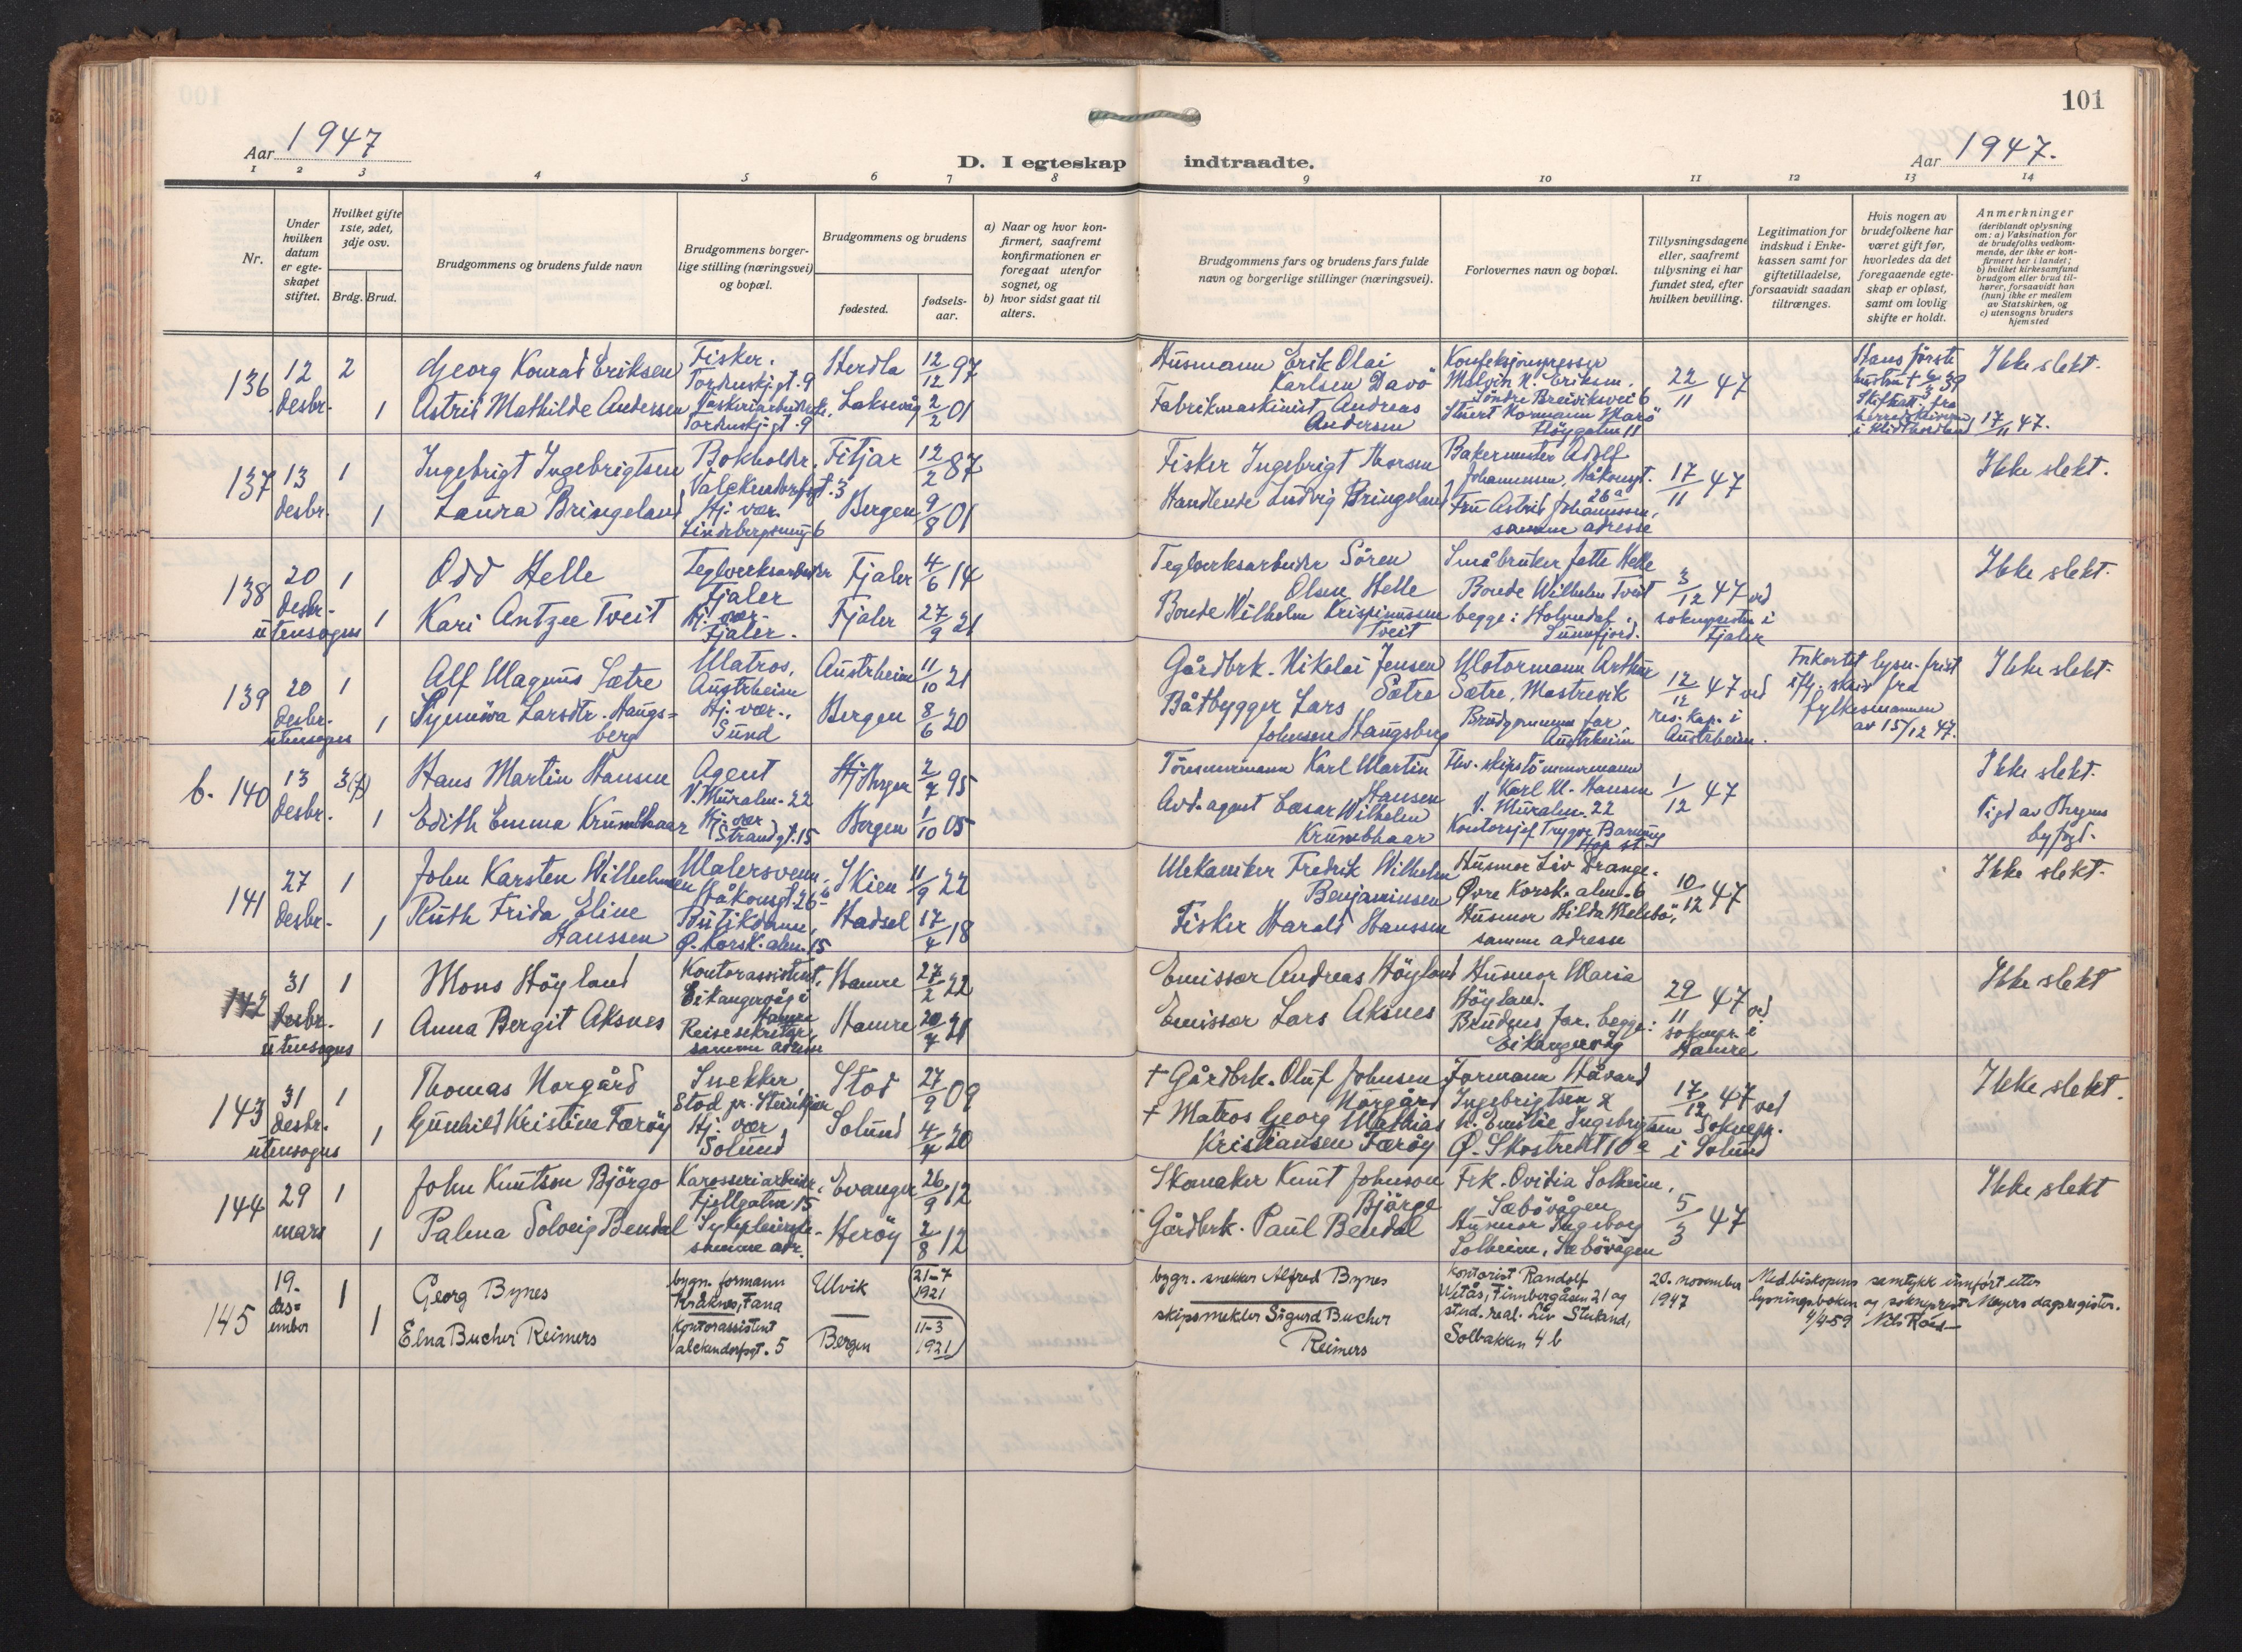 101
Aar 1947
D. I egteskap indtraadte.
Aar 1947.
1 2 3 4 5 6 7 8 9 10 11 12 13 14
Nr.
Under hvilken datum er egteskapet stiftet.
Hvilket gifte 1ste, 2det, 3dje osv.
Brdg. Brud.
Brudgommens og brudens fulde navn
Brudgommens borgerlige stilling (næringsvei) og bopæl.
Brudgommens og brudens
fødested.
fødselsaar.
a) Naar og hvor konfirmert, saafremt konfirmationen er foregaat utenfor sognet, og
b) hvor sidst gaat til alters.
Brudgommens fars og brudens fars fulde navn og borgerlige stillinger (næringsvei).
Forlovernes navn og bopæl.
Tillysningsdagene eller, saafremt tillysning ei har fundet sted, efter hvilken bevilling.
Legitimation for indskud i Enkekassen samt for giftetilladelse, forsaavidt saadan tiltrænges.
Hvis nogen av brudefolkene har været gift før, hvorledes da det foregaaende egteskap er opløst, samt om lovlig skifte er holdt.
Anmerkninger
(deriblandt oplysning om: a) Vaksination for de brudefolks vedkommende, der ikke er konfirmert her i landet; b) hvilket kirkesamfund brudgom eller brud tilhører, forsaavidt han (hun) ikke er medlem av Statskirken, og c) utensogns bruders hjemsted
136 12 desbr. 2 Georg Konrad Eriksen Fisker. Tordenskj.gt. 9 Herdla 12/12 97
1 Astrid Mathilde Andersen Tordenskj.gt. 9 Laksevåg 2/2 01
Husmann Erik Olai Karlsen Davö
Fabrikmaskinist Andreas Andersen
Konfeksjonspresser Melvin N. Eriksen, Söndre Breiviksvei 6
Höygaten 11
22/11 47
Hans förste hustru + 6/3 39
Skifteatt. fra herredskriveren i Midthordland 17/11 47.
Ikke slekt.
137 13 desbr. 1 Ingebrigt Ingebrigtsen Bokholder, Valckendorfsgt. 3 Fitjar 12/2 87
1 Laura Bringeland Hj. vær. Bergen 9/8 01
Fisker Ingebrigt Thorsen
Handlende Ludvig Bringeland
Bakermester Adolf Johannessen, Håkonsgt. 26a
Fru Astrid Johannessen, samme adresse
17/11 47
Ikke slekt.
138 20 desbr. utensogns 1 Odd Helle Teglverksarbeider Fjaler Fjaler 4/6 14
1 Kari Antzee Tveit Hj. vær. Fjaler. Fjaler 27/9 21
Teglverksarbeider Sören Olsen Helle
Bonde Wilhelm Krispinussen Tveit
Småbruker Jette Helle
Bonde Wilhelm Tveit begge: Holmedal, Sunnfjord.
3/12 47 ved sokneprsten i Fjaler
Ikke slekt.
139 20 desbr. utensogns 1 Alf Magnus Sætre Matros, Austrheim Austrheim 11/10 21
1 Synnöva Larsdtr. Haugsberg Hj. vær., Sund Bergen 8/6 20
Gårdbrk. Nikolai Jensen Sætre
Båtbygger Lars Johnsen Haugsberg
Motormann Arthur Sætre, Mastrevik
Brudgommens far, Austrheim
12/12 47 ved res. kap. i Austrheim.
Forkortet lysn. frist iflg. skriv fra fylkesmannen av 15/12 47.
Ikke slekt.
b. 140 13 desbr. 3(f) Hans Martin Hansen Agent V. Muralm. 22 Bergen 2/7 95
1 Edith Emma Krumbhaar Hj. vær Strandgt. 15 Bergen 1/10 05
Tömmermann Karl Martin Hansen
Avd. agent Cæsar Wilhelm Krumbhaar
Fhv. skipstömmermann Karl M. Hansen V. Muralm. 22
Kontorsjef Trygve Barmung Hop st.
1/12 47
Ikke slekt.
Vigd av Bergens byfogd.
141 27 desbr. 1 John Karsten Wilhelmsen Malersvenn, Håkonsgt. 26b Skien 11/9 22
1 Ruth Frida Eline Hanssen Butikdame, Ø. Korsk. alm. 15 Hadsel 17/4 18
Mekaniker Fredrik Wilhelm Benjaminsen
Fisker Harald Hanssen
Husmor Liv Drange. Øvre Korsk. alm. 6
Husmor Hilda Mælebö, samme adresse
10/12 47
Ikke slekt.
142 31 desbr. utensogns 1 Mons Höyland Kontorassistent, Eikangervåg i Hamre Hamre 27/2 22
1 Anna Bergit Aksnes Reisesekretær, samme adresse Hamre 20/7 21
Emissær Andreas Höyland
Emissær Lars Aksnes
Husmor Maria Höyland.
Brudens far. begge: Eikangervåg
29/11 47 ved soknepr. i Hamre
Ikke slekt
143 31 desbr. utensogns 1 Thomas Norgård Snekker, Stod pr. Steinkjær Stod 27/9 09
1 Gunhild Kristine Færöy Hj. vær, Solund Solund 4/4 20
+ Gårdbrk. Oluf Johnsen Norgård
+ Matros Georg Mathias Kristiansen Færöy
Formann Håvard Ingebrigtsen &
h. Emilie Ingebrigtsen Ø. Skostredet 10a
17/12 47 ved Soknepr. i Solund
Ikke slekt.
144 29 mars 1 John Knutson Björgo Karosseriarbeider, Fjellgaten 15 Evanger 26/9 12
1 Palma Solveig Bendal Sykepleierske. samme adr. Heröy 2/8 12
Skomaker Knut Johnson Björgo
Gårdbrk. Paul Bendal
Frk. Ovidia Solheim, Sæbövågen
Husmor Ingeborg Solheim, Sæbövågen
5/3 47
Ikke slekt
145 19. desember 1 Georg Bynes bygn. formann Kråknes, Fana Ulvik 21-7 1921
1 Elna Bucher Reimers Kontorassistent Valckendorfsgt. 5 Bergen 11-3 1921
bygn. snekker Alfred Bynes
skipsmekler Sigurd Bucher Reimers
Kontorist Randolf Vetås, Finnbergåsen 21 og
stud. real. Liv Stuland, Solbakken 4 b
20. november 1947
Med biskopens samtykk innført etter lysningsboken og sokneprest Meyers dagsregister.
4/4-59 Nils Roed